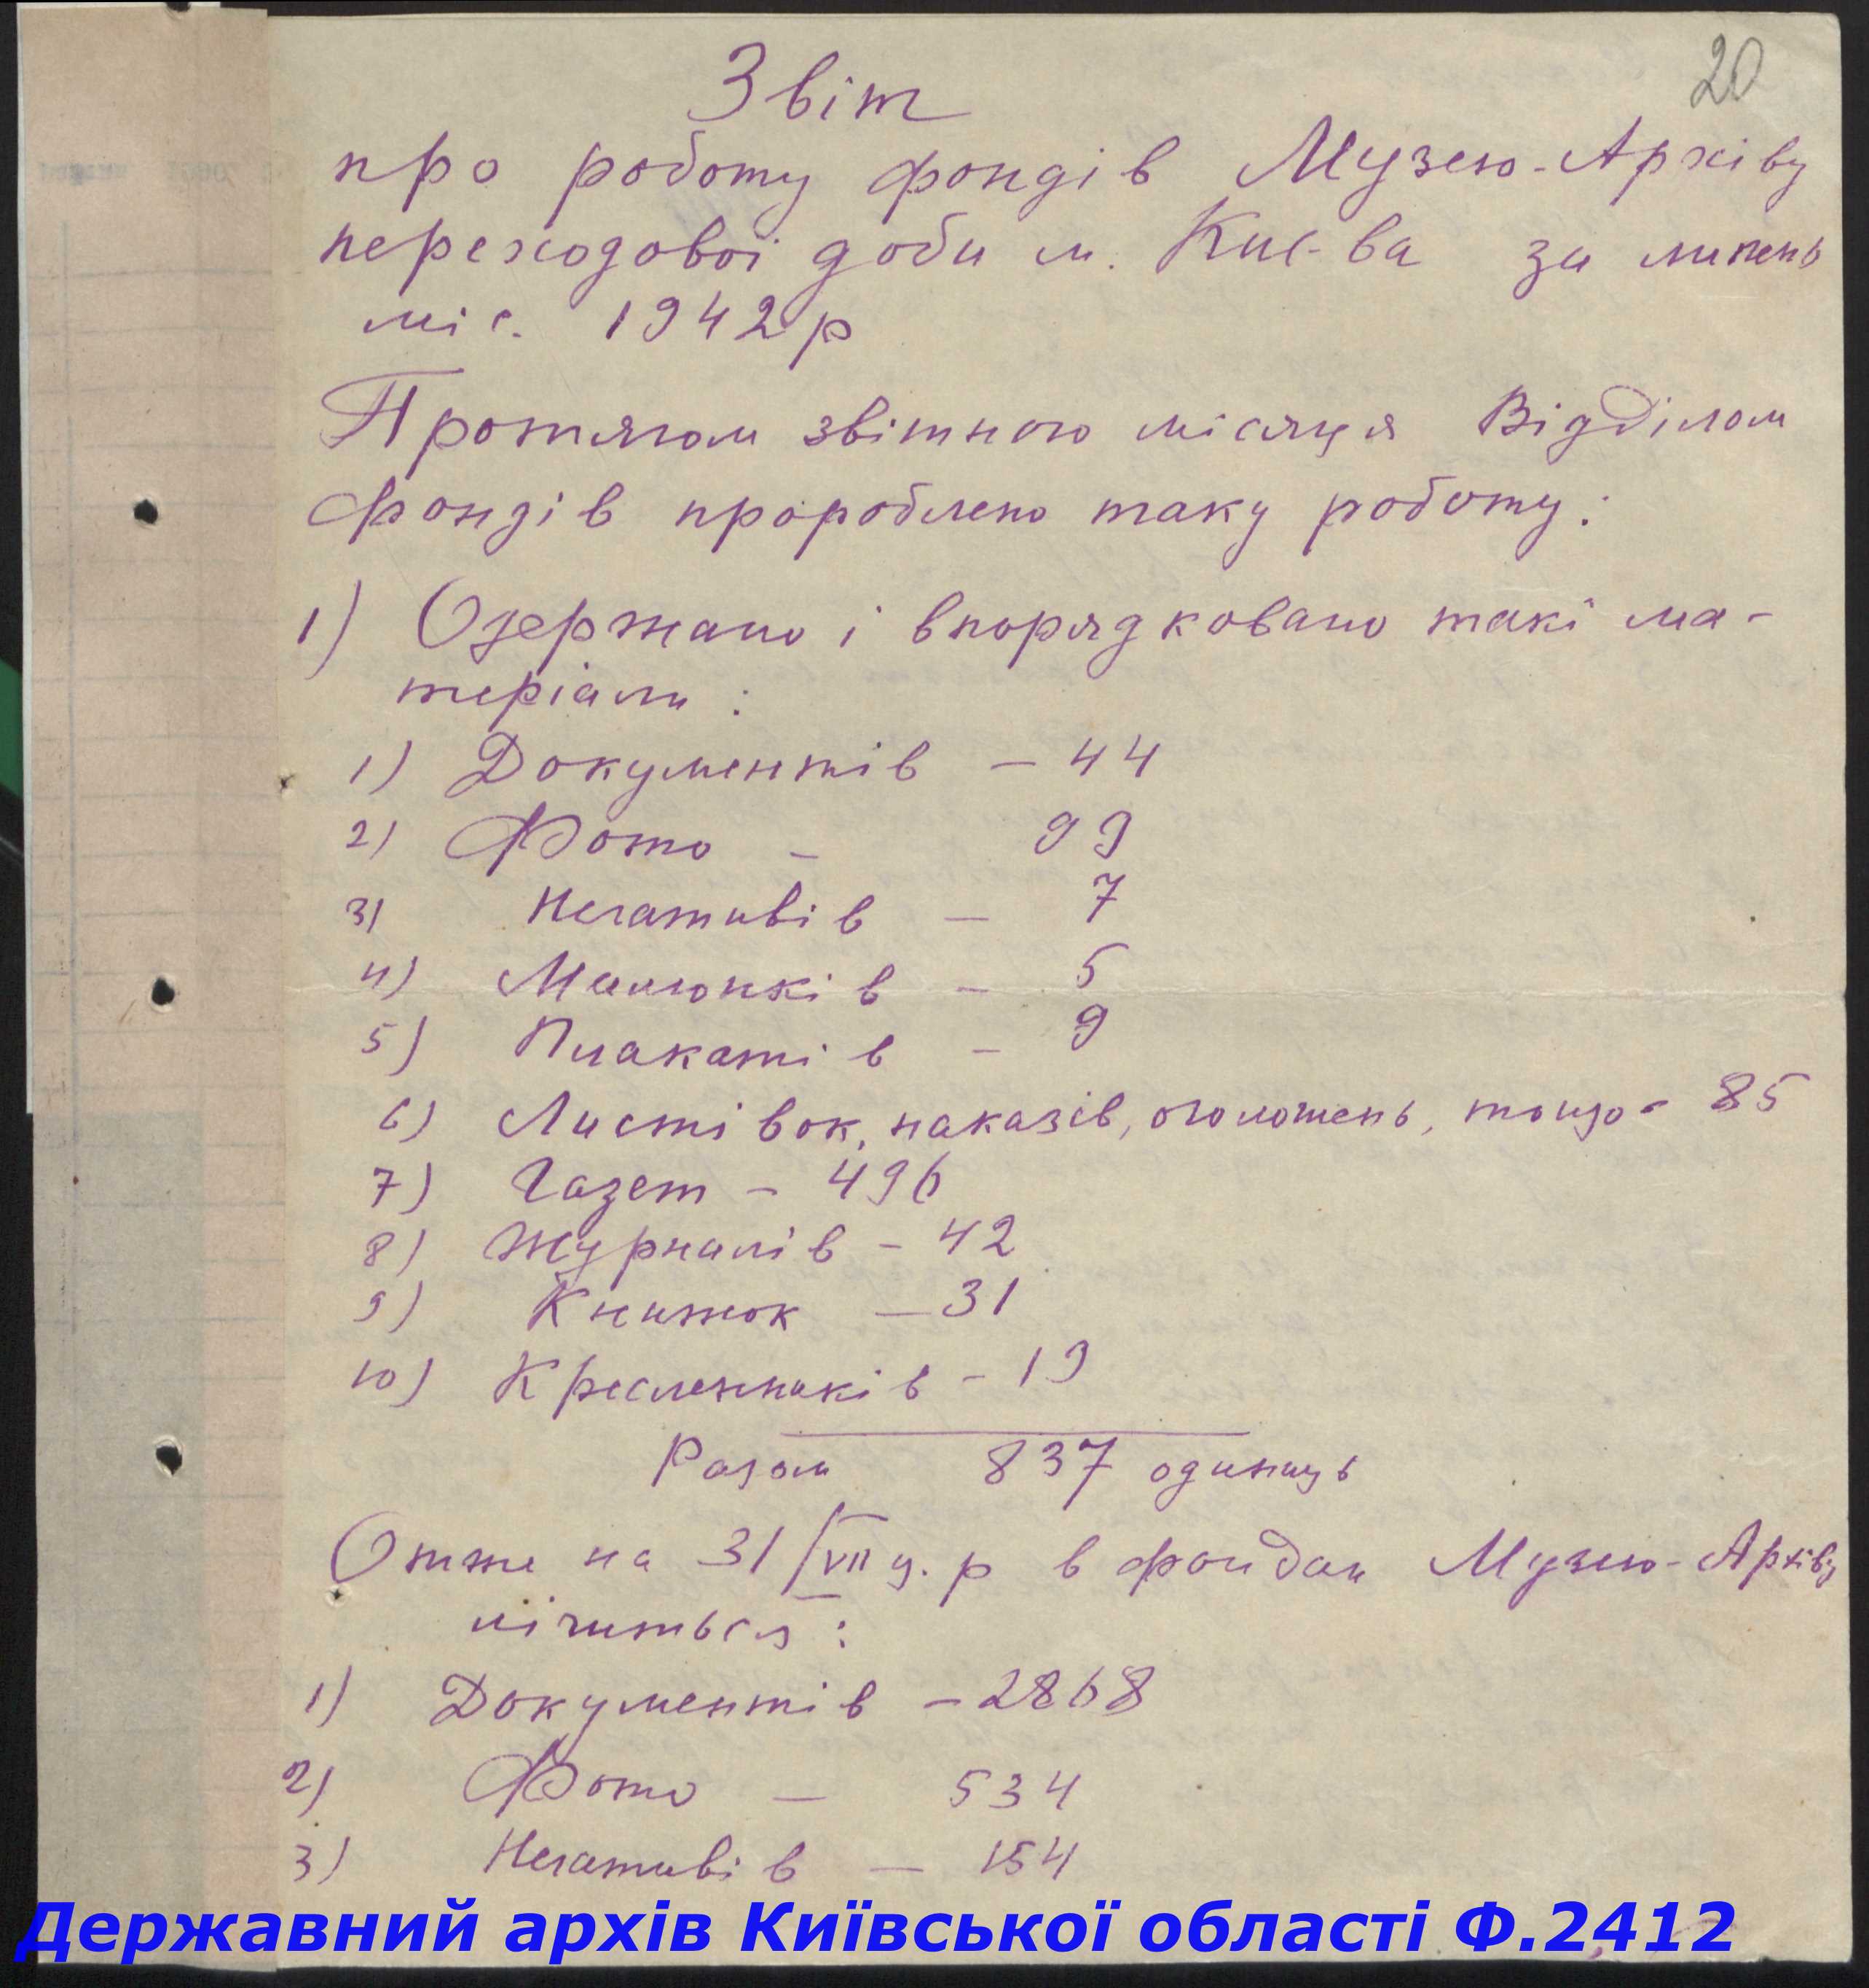 20
Звіт
про роботу фондів Музею-Архіву
переходової доби м. Киє-ва за липень
міс. 1942р
Протягом звітного місяця Відділом
фондів пророблено таку роботу:
1) Одержано і впорядковано такі ма-
теріали:
1) Документів – 44
2) Фото – 99
3) Негативів – 7
4) Малюнків – 5
5) Плакатів – 9
6) Листівок, наказів, оголошень, тощо - 85
7) Газет – 496
8) Журналів – 42
9) Книжок – 31
10) Кресленників – 19
Разом 837 одиниць
Отже на 31/VII ц.р в фондах Музею-Архіву
лічиться:
1) Документів – 2868
2) Фото – 534
3) Негативів – 154
Державний архів Київської області Ф.2412